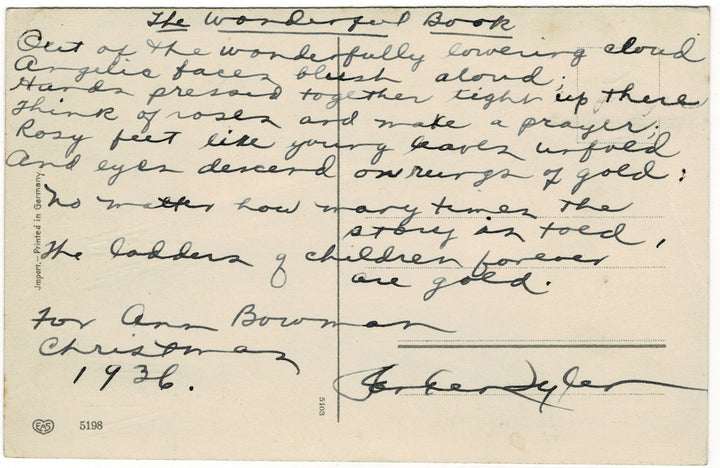 The Wonderful Book
Out of the wonderfully lowering cloud
Angelic faces blush aloud;
Hands pressed together tight up there
Think of roses and make a prayer;
Rosy feet like young leaves unfold
And eyes descend on rungs of gold:
No matter how many times the
story is told,
The ladders of children forever
are gold.
For Ann Bowman
Christmas
1936.
Parker Tyler
Import.—Printed in Germany.
EAS 5198
5103